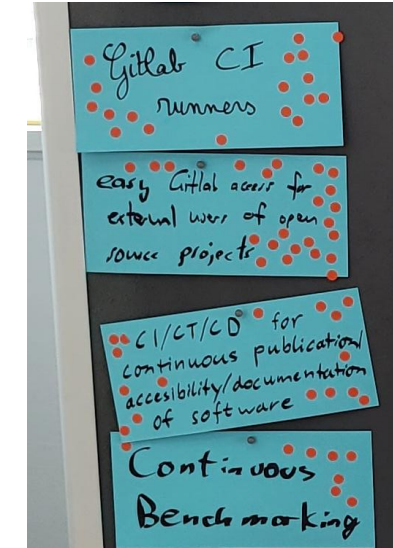 Gitlab CI
runners
easy Gitlab access for
external users of open
source projects
CI/CT/CD for
continuous publication/
accesibility/documentation
of software
Continuous
Benchmarking